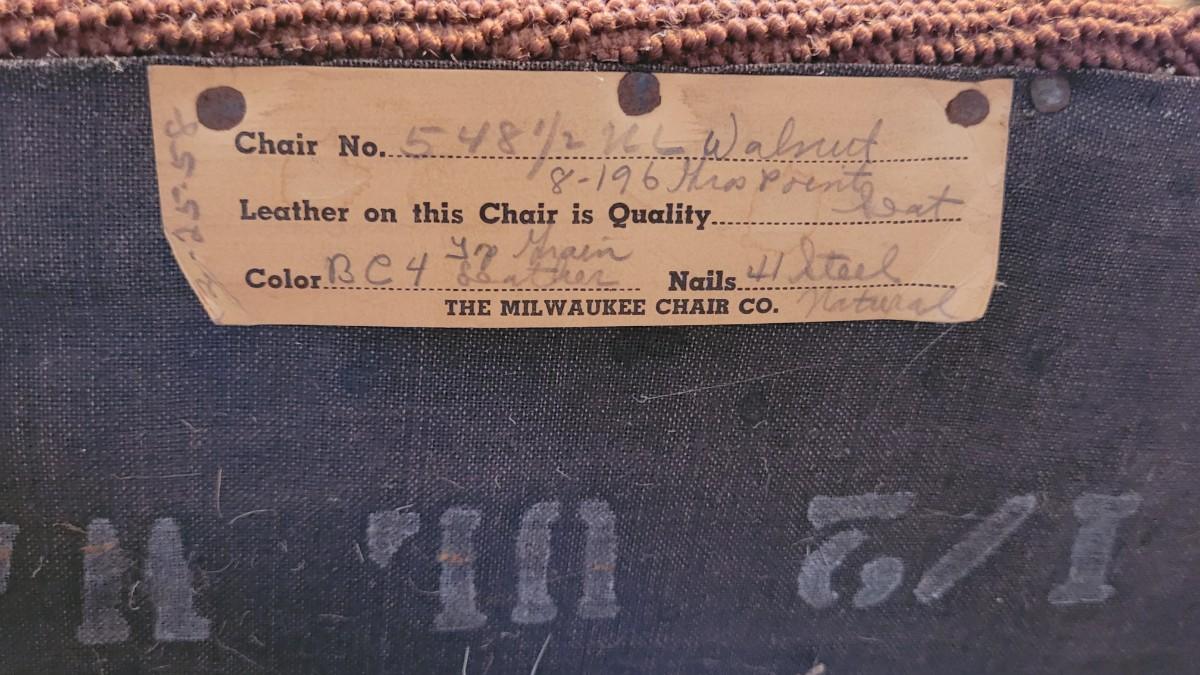 Chair No. 548 1/2 UL Walnut
8-196 Gros Point
Leather on this Chair is Quality Seat
Color BC4 Top Grain Leather Nails 41 Steel
THE MILWAUKEE CHAIR CO. Natural
25-58
1/2 UL